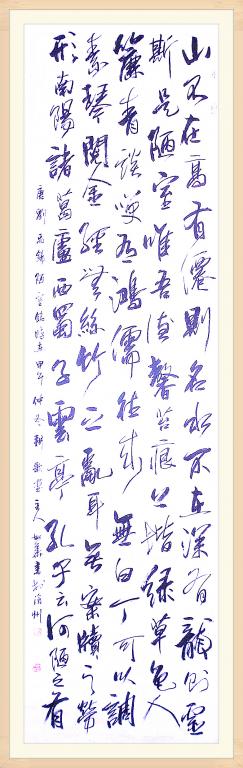 山不在高有僊則名水不在深有龍則靈
斯是陋室唯吾德馨苔痕上堦綠草色入
簾青談笑有鴻儒往來無白丁可以調
素琴閱金經無絲竹之亂耳無案牘之勞
形南陽諸葛廬西蜀子雲亭孔子云何陋之有
唐劉禹錫陋室銘歲在甲午仲冬主人書於濱州